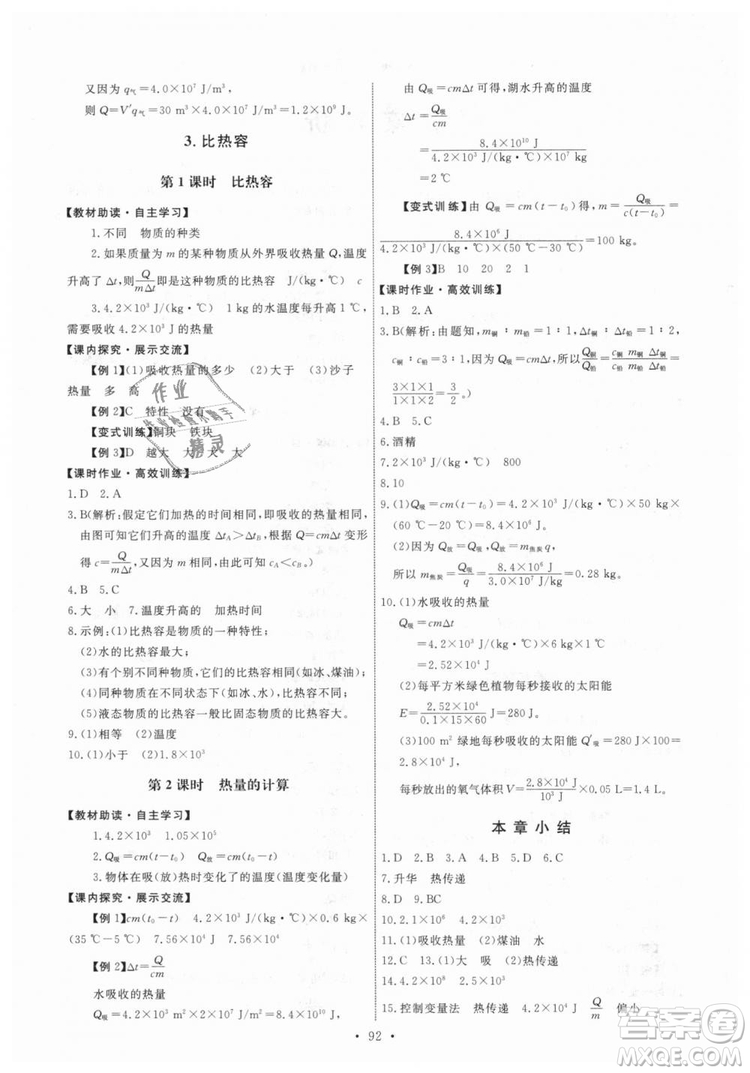 又因为 q气=4.0×10⁷ J/m³,
则 Q=V′q气=30 m³×4.0×10⁷ J/m³=1.2×10⁹ J。
3.比热容
第1课时 比热容
【教材助读·自主学习】
1.不同 物质的种类
2.如果质量为 m 的某种物质从外界吸收热量 Q,温度
升高了 Δt,则Q/mΔt即是这种物质的比热容 J/(kg·℃) c
3.4.2×10³ J/(kg·℃) 1 kg的水温度每升高1 ℃,
需要吸收4.2×10³ J的热量
【课内探究·展示交流】
【例1】(1)吸收热量的多少 (2)质量 (3)沙子
热量 多 高
【例2】C 特性 没有
【变式训练】铜块 铁块
【例3】D 越大 大 大 大
【课时作业·高效训练】
1.D 2.A
3.B(解析:假定它们加热的时间相同,即吸收的热量相同,
由图可知它们升高的温度 ΔtA>ΔtB,根据Q=cmΔt变形
得 c=Q/mΔt,又 m 相同,故可得出 cA<cB。)
4.B 5.C
6.大 小 7.温度升高的 加热时间
8.示例:(1)比热容是物质的一种特性;
(2)水的比热容最大;
(3)有个别不同种物质,它们的比热容相同(如冰、煤油);
(4)同种物质在不同状态下(如冰、水),比热容不同;
(5)液态物质的比热容一般比固态物质的比热容大。
9.(1)相等 (2)温度
10.(1)小于 (2)1.8×10³
第2课时 热量的计算
【教材助读·自主学习】
1.4.2×10³ 1.05×10⁵
2.Q吸=cm(t-t₀) Q放=cm(t₀-t)
3.物体在吸(放)热时变化了的温度(温度变化量)
【课内探究·展示交流】
【例1】cm(t₀-t) 4.2×10³ J/(kg·℃)×0.6 kg
×(35 ℃-5 ℃) 7.56×10⁴ J 7.56×10⁴ J
【例2】Δt=Q/cm
水吸收的热量
Q吸=4.2×10⁷ J/m²×2×10³ m²=8.4×10¹⁰ J
由 Q吸=cmΔt 可得,湖水升高的温度
Δt=Q吸/cm
=8.4×10¹⁰ J/4.2×10³ J/(kg·℃)×10⁷ kg
=2 ℃
【变式训练】由 Q吸=cm(t-t₀)得 m=Q吸/c(t-t₀)=
8.4×10⁶ J/4.2×10³ J/(kg·℃)×(50 ℃-30 ℃)=100 kg。
【例3】B 10 20 2 1
【课时作业·高效训练】
1.B 2.A
3.B(解析:由题知,m铜∶m铅=1∶1,Δt铜∶Δt铅=1∶2,
c铜∶c铅=3∶1,因为 Q吸=cmΔt,所以Q铜/Q铅=c铜 m铜 Δt铜/c铅 m铅 Δt铅=
3×1×1/1×1×2=3/2。)
4.B 5.C
6.酒精
7.2.2×10³ J/(kg·℃) 800
8.10
9.(1)Q吸=cm(t-t₀)=4.2×10³ J/(kg·℃)×50 kg
×(60 ℃-20 ℃)=8.4×10⁶ J。
(2)因为 Q吸=Q放=m焦炭q,
所以 m焦炭=Q吸/q=8.4×10⁶ J/3.0×10⁷ J/kg=0.28 kg。
10.(1)水吸收的热量
Q吸=cmΔt
=4.2×10³ J/(kg·℃)×0.6 kg×10 ℃
=2.52×10⁴ J
(2)每平方米绿色植物每秒接收的太阳能
E=2.52×10⁴ J/0.1×15×60=280 J。
(3)100 m² 绿地每秒接收的太阳能 Q′吸=2.8×10⁴ J,
每秒放出的氧气体积 V=2.8×10⁴ J/10³ J×0.05 L=1.4 L。
本章小结
1.D 2.D 3.A 4.A 5.D 6.B
7.升华 热传递
8.D 9.BC
10.2.1×10⁶ 4.2×10³
11.(1)吸收热量 (2)煤油 水
12.C 13.(1)大 吸 (2)大
14.4.2×10⁶ 2.5×10³
15.控制变量法 热传递 4.2×10⁴ Q/m 偏小
· 92 ·
作业
精灵
答案圈
MXQE.COM